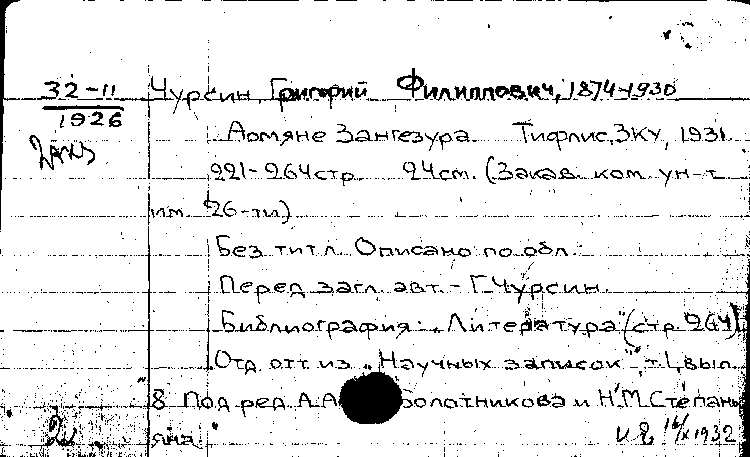 32-11 Чурсин, Григорий Филиппович, 1874-1930
1926
Армяне Зангезура. Тифлис, ЗКУ, 1931
221-264 стр. 24 см. (Закав. ком. ун-т
им. 26-ти)
Без титл. Описано по обл.
Перед загл. авт. - Г. Чурсин.
Библиография: "Литература" (стр 264)
Отд. отт. из "Научных записок", т. 1, вып.
8 Под ред. А.А. Болотникова и Н.М. Степань
яна"